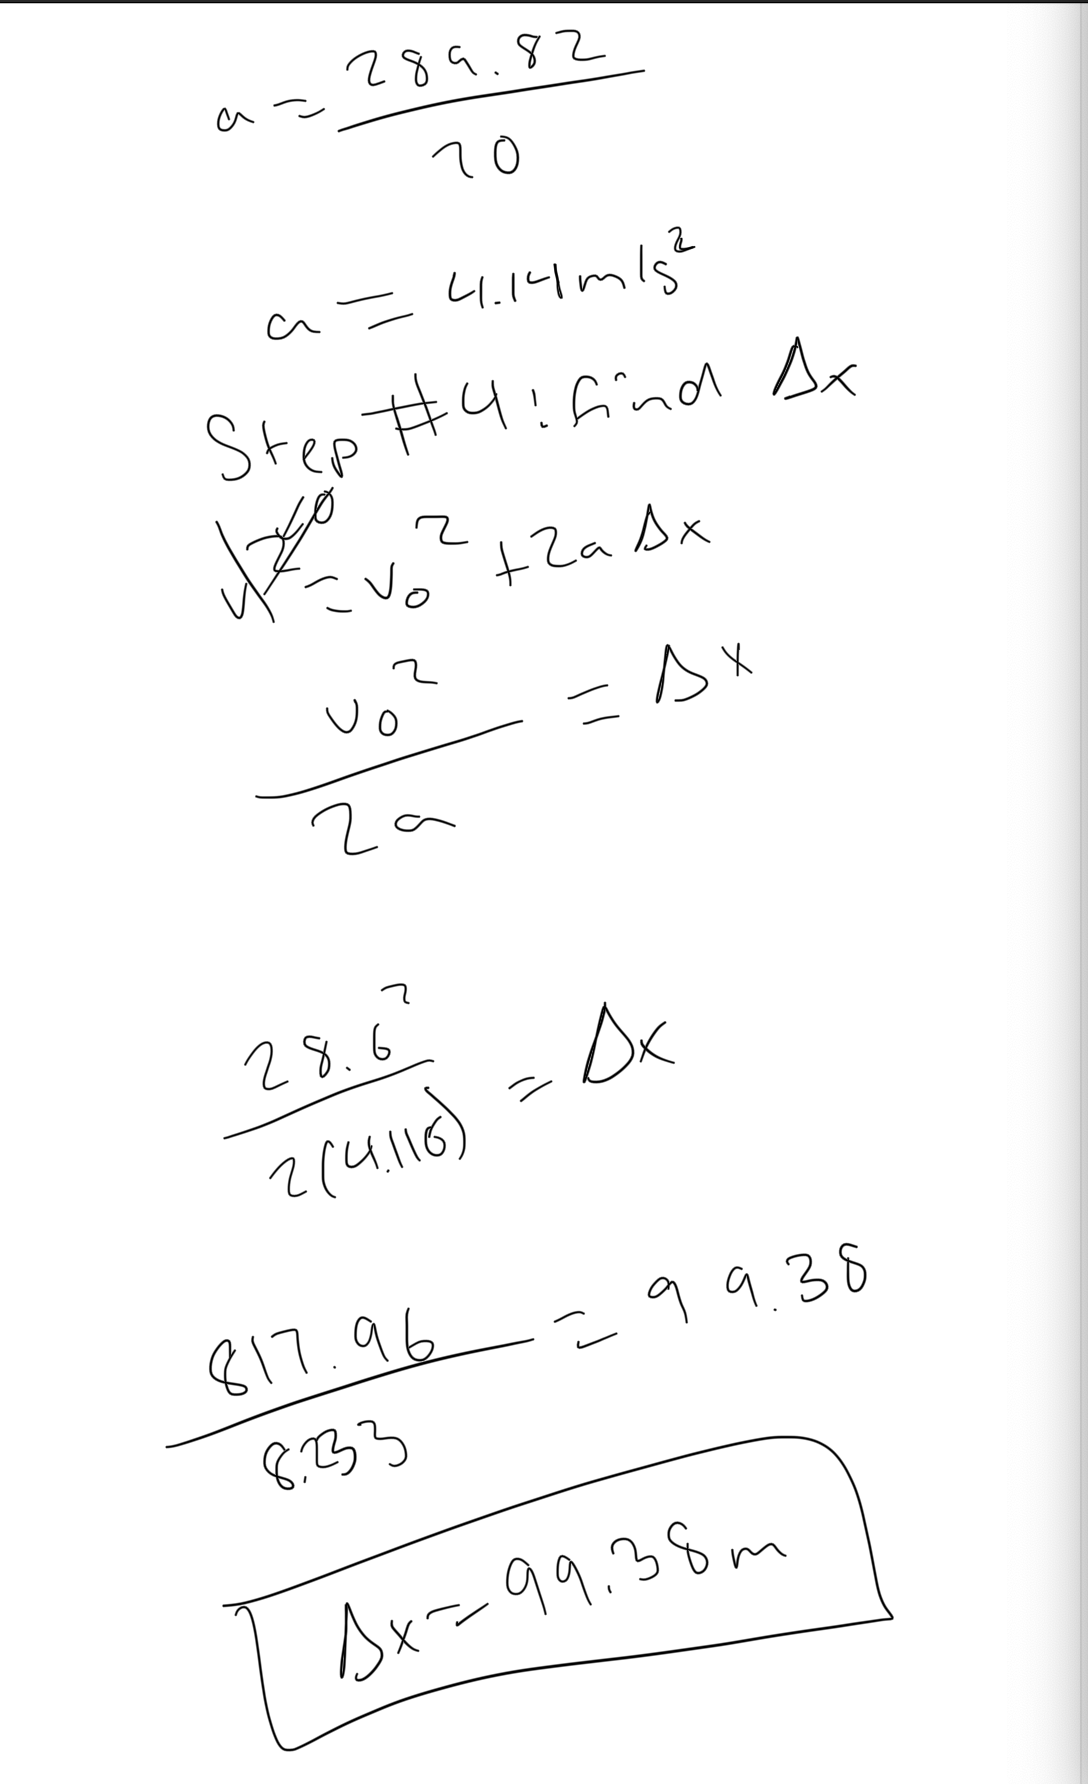 a = 289.82 / 70
a = 4.14 m/s²
Step #4: find Δx
v² = v₀² + 2aΔx
v₀² / 2a = Δx
28.6² / 2(4.116) = Δx
817.96 / 8.233 = 99.38
Δx = 99.38 m